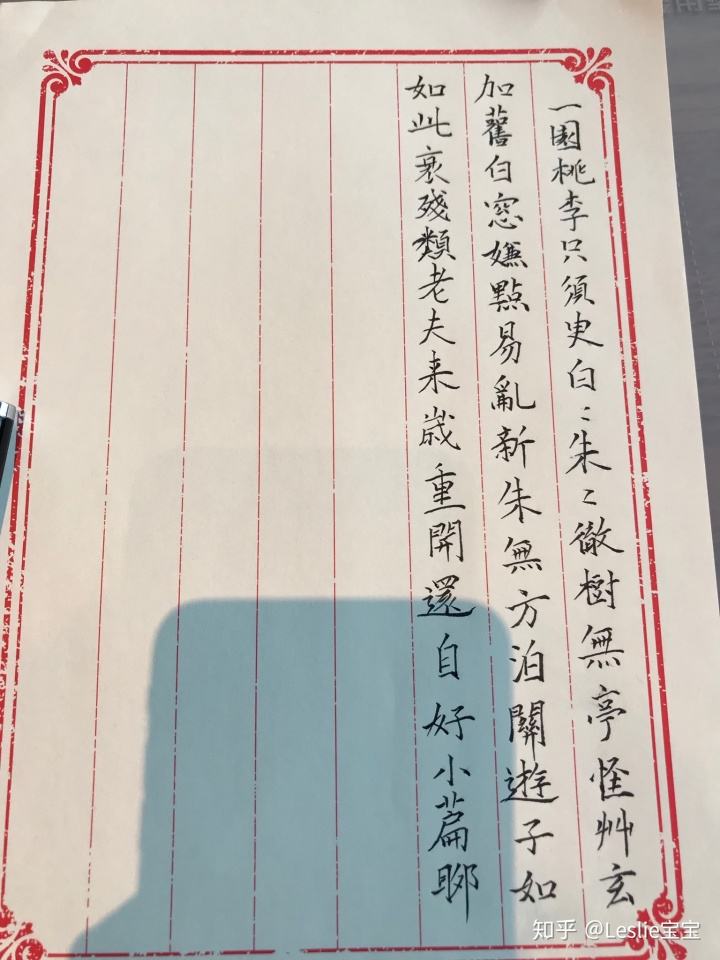 一園桃李只須臾白〻朱〻徹樹無亭怪艸玄
加舊白窓嫌點易亂新朱無方泊關遊子如
如此衰殘類老夫来歲重開還自好小篇聊
知乎 @Leslie宝宝